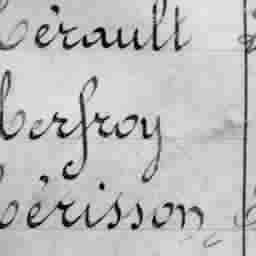 Hérault
Herfroy
Hérisson